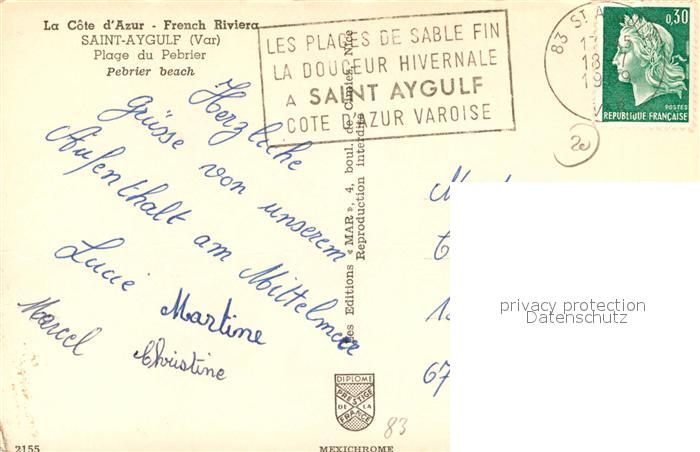 La Côte d'Azur - French Riviera
SAINT-AYGULF (Var)
Plage du Pebrier
Pebrier beach
LES PLAGES DE SABLE FIN
LA DOUCEUR HIVERNALE
A SAINT AYGULF
COTE D'AZUR VAROISE
83 ST A
18
0,30
POSTES
REPUBLIQUE FRANÇAISE
20
Herzliche
Grüsse von unserem
Aufenthalt am Mittelmeer
Lucie
Martine
Marcel
Christine
Editions «MAR», 4, boul. de Cimiez, Nice
Reproduction interdite
67
privacy protection
Datenschutz
DIPLOME
PRESTIGE
DE LA
FRANCE
83
2155
MEXICHROME